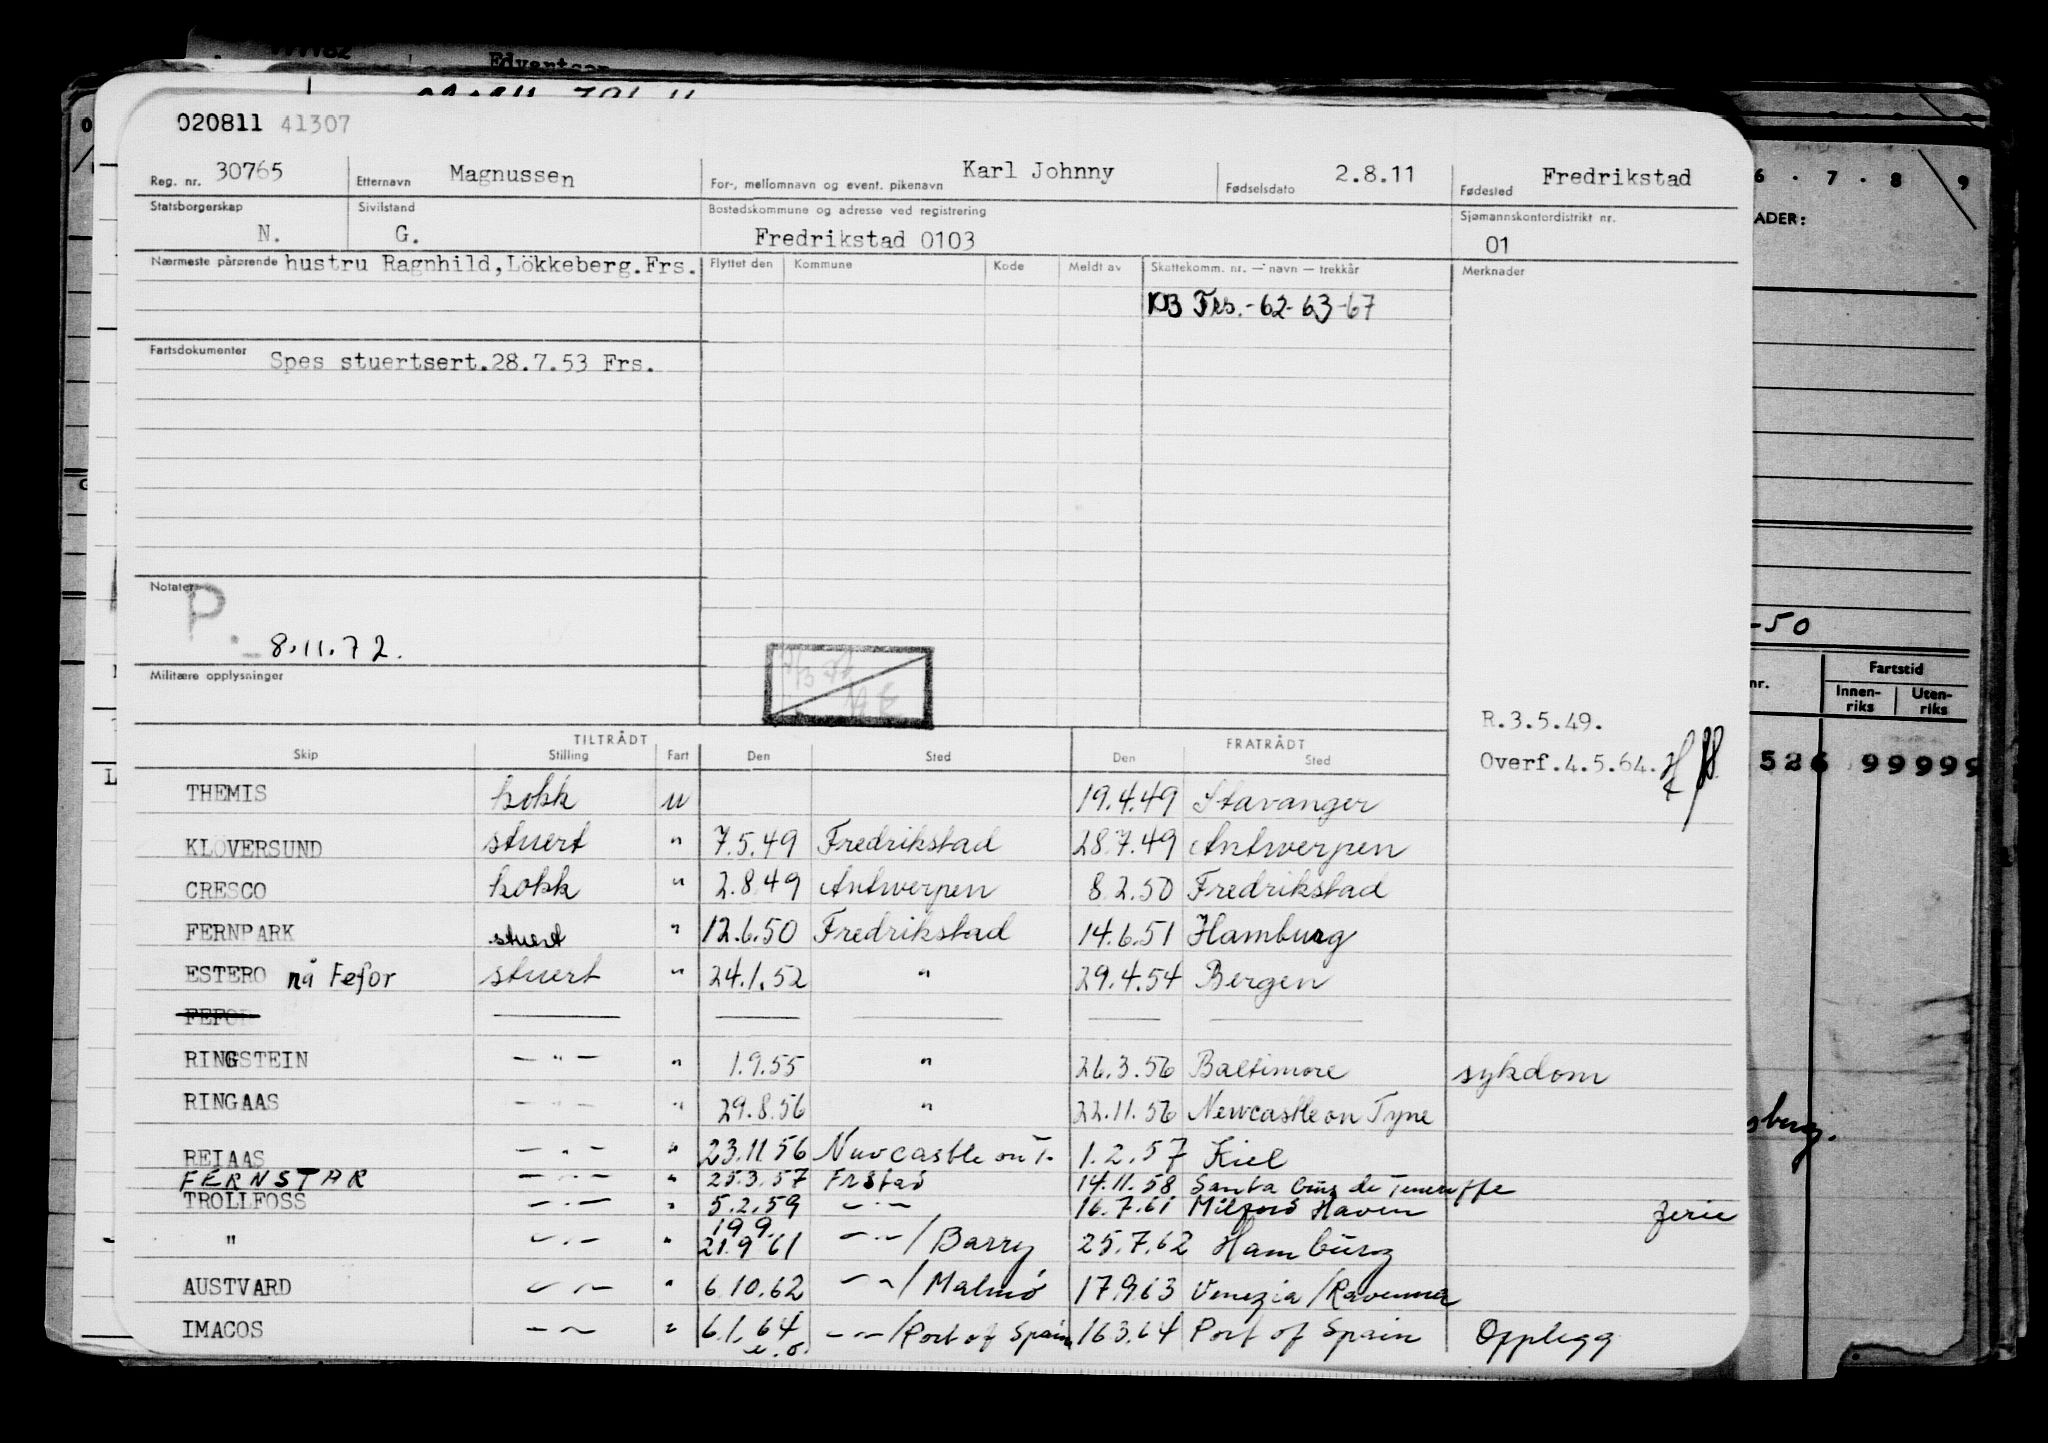 020811 41307
Reg. nr. 30765 Etternavn Magnussen For-, mellomnavn og event. pikenavn Karl Johnny Fødselsdato 2.8.11 Fødested Fredrikstad
Statsborgerskap N. Sivilstand G. Bostedskommune og adresse ved registrering Fredrikstad 0103 Sjømannskontordistrikt nr. 01
Nærmeste pårørende hustru Ragnhild, Lökkeberg. Frs. Flyttet den Kommune Kode Meldt av Skattekomm. nr. — navn — trekkår Merknader
103 Frs. -62-63-67
Fartsdokumenter Spes stuertsert.28.7.53 Frs.
Notater P.
8.11.72.
Militære opplysninger
R.3.5.49.
Overf.4.5.64.
TILTRÅDT FRATRÅDT
Skip Stilling Fart Den Sted Den Sted
THEMIS kokk u 19.4.49 Stavanger
KLÖVERSUND stuert " 7.5.49 Fredrikstad 28.7.49 Antwerpen
CRESCO kokk " 2.8.49 Antwerpen 8.2.50 Fredrikstad
FERNPARK stuert " 12.6.50 Fredrikstad 14.6.51 Hamburg
ESTERO nå Fefor stuert " 24.1.52 " 29.4.54 Bergen
FEFOR
RINGSTEIN — " — " 1.9.55 " 26.3.56 Baltimore sykdom
RINGAAS — " — " 29.8.56 " 22.11.56 Newcastle on Tyne
REIAAS — " — " 23.11.56 Newcastle on T. 1.2.57 Kiel
FERNSTAR — " — " 25.3.57 Frstad 14.11.58 Santa Cruz de Teneriffe
TROLLFOSS — " — " 5.2.59 — " — 16.7.61 Milford Haven ferie
" — " — " 19.9. 21.9 61 — " — / Barry 25.7.62 Hamburg
AUSTVARD — " — " 6.10.62 — " — / Malmö 17.9.63 Venezia / Ravenna
IMACOS — " — " 6.1.64 — " — / Port of Spain 16.3.64 Port of Spain Opplegg
6 . 7 . 8 . 9
ADER:
-50
nr. Fartstid
Innen-riks Uten-riks
526 99999